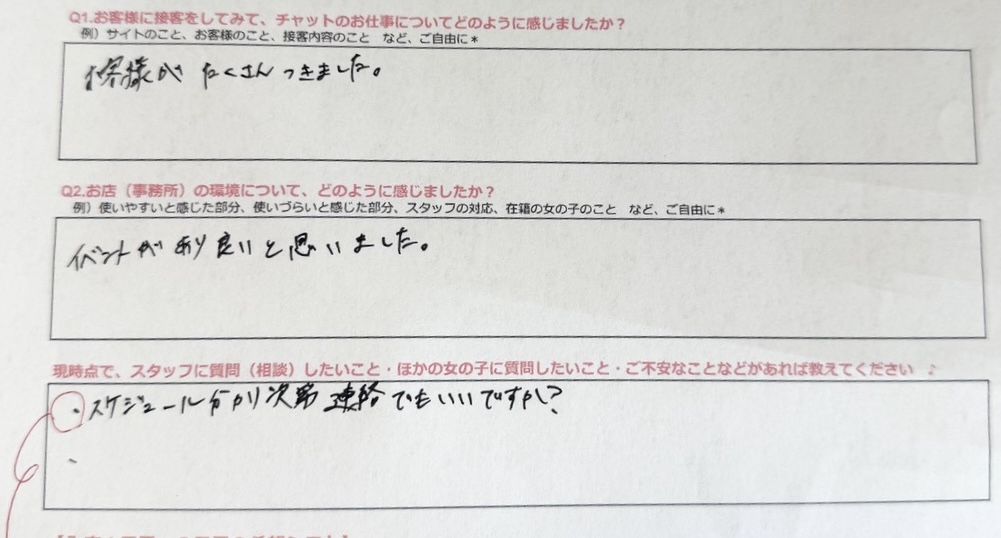 Q1.お客様に接客をしてみて、チャットのお仕事についてどのように感じましたか？
例）サイトのこと、お客様のこと、接客内容のこと　など、ご自由に＊
お客様がたくさんつきました。
Q2.お店（事務所）の環境について、どのように感じましたか？
例）使いやすいと感じた部分、使いづらいと感じた部分、スタッフの対応、在籍の女の子のこと　など、ご自由に＊
イベントがあり良いと思いました。
現時点で、スタッフに質問（相談）したいこと・ほかの女の子に質問したいこと・ご不安なことなどがあれば教えてください　♪
・スケジュール分かり次第連絡でもいいですか？